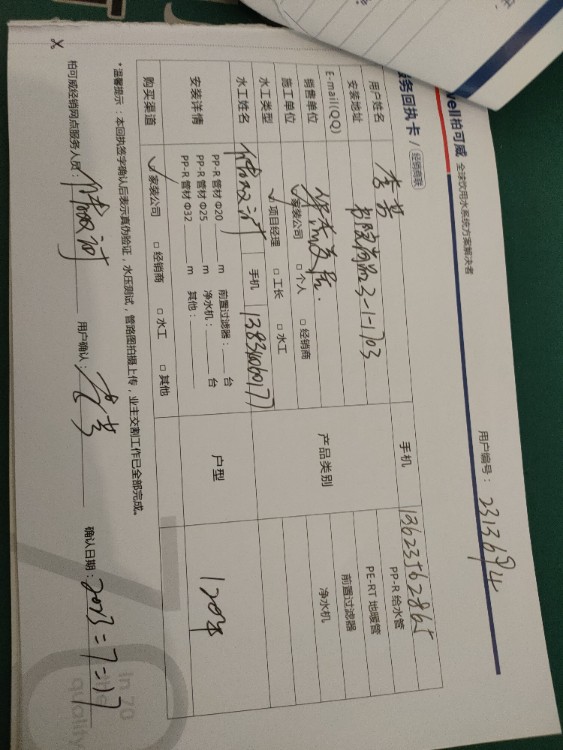 well柏可威 全球饮用水系统方案解决者
服务回执卡 / 经销商联
用户编号：
用户姓名 李芳
手机 13623562865
安装地址 3-1-1703
E-mail(QQ)
销售单位
产品类别
PP-R 给水管
PE-RT 地暖管
前置过滤器
净水机
施工单位 ✓家装公司 □ 个人 □ 经销商
水工类型 ✓项目经理 □ 工长 □ 水工
水工姓名
手机
安装详情
PP-R 管材 Φ20 ____ m 前置过滤器：____ 台
PP-R 管材 Φ25 ____ m 净水机：____ 台
PP-R 管材 Φ32 ____ m 其他：____
户型
购买渠道 ✓家装公司 □ 经销商 □ 水工 □ 其他
*温馨提示：本回执签字确认后表示真伪验证，水压测试，管路图拍摄上传，业主交割工作已全部完成。
柏可威经销网点服务人员：
用户确认：李芳
确认日期：
In 70
the
quality